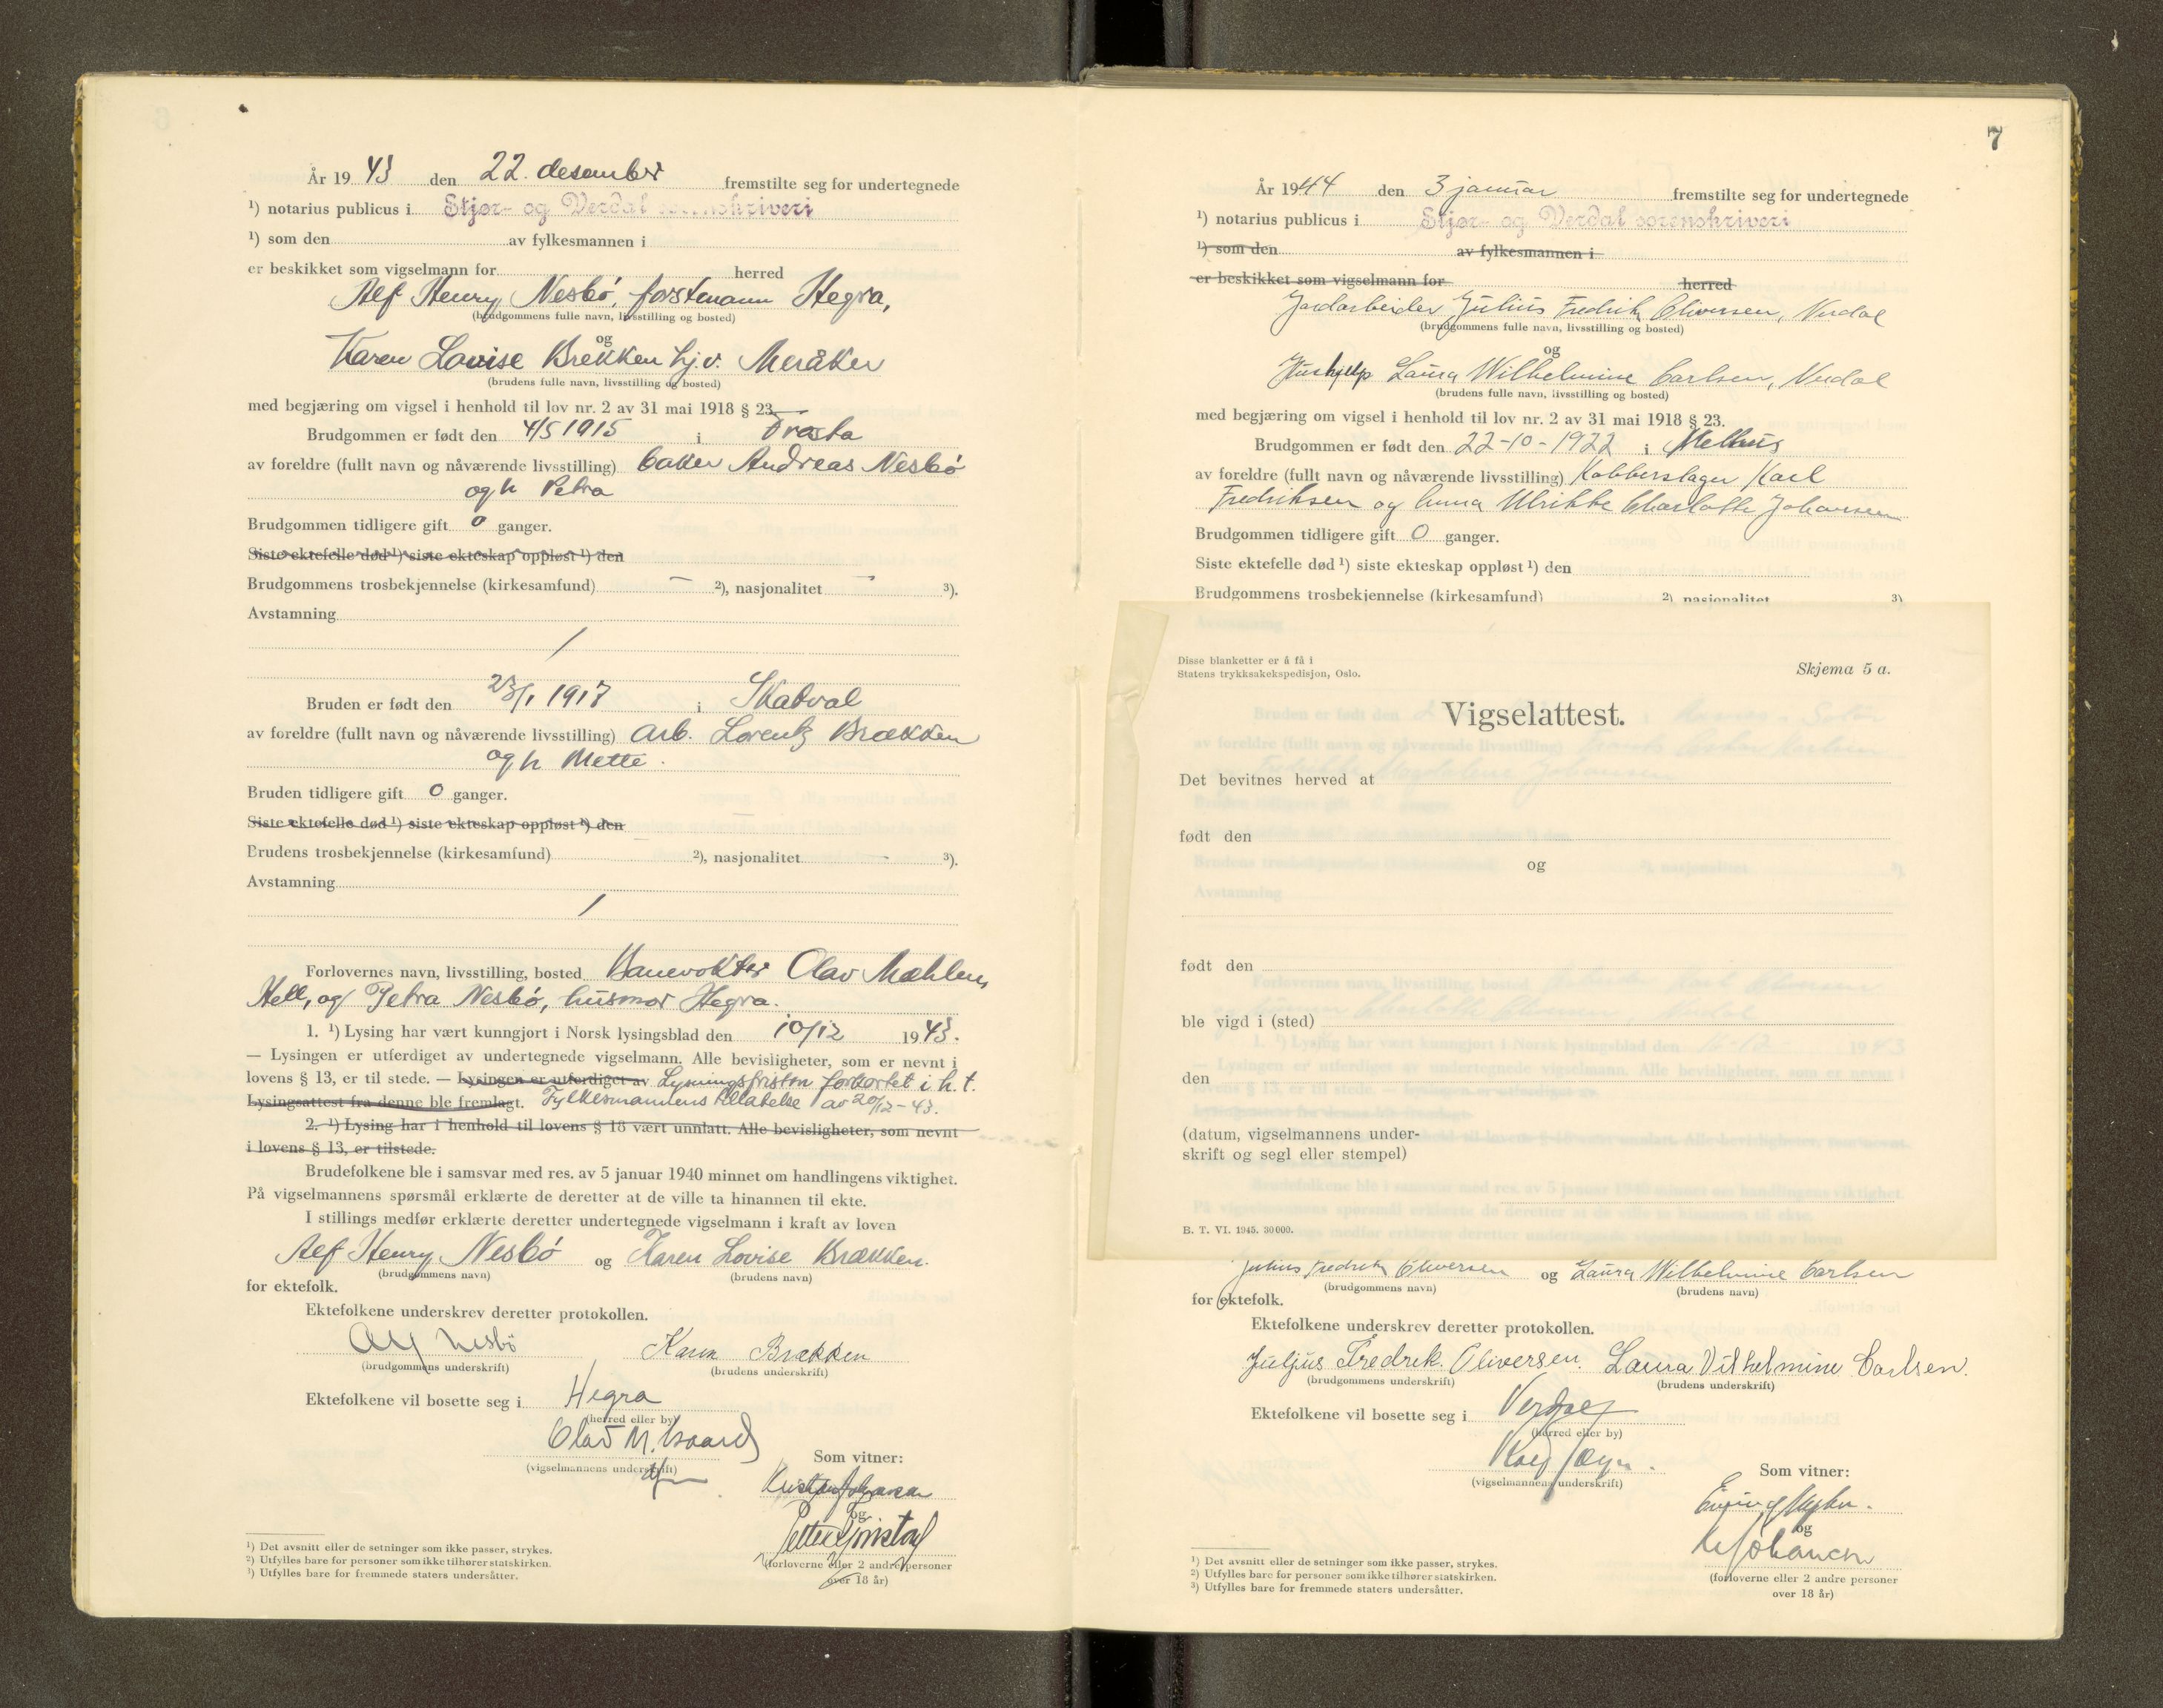 År 1943 den 22. desember fremstilte seg for undertegnede
¹) notarius publicus i Stjør- og Verdal sorenskriveri
¹) som den av fylkesmannen i
er beskikket som vigselmann for herred
Alf Henry Nesbö, forstmann Hegra,
(brudgommens fulle navn, livsstilling og bosted)
og
Karen Lovise Brekken hj.v. Meråker
(brudens fulle navn, livsstilling og bosted)
med begjæring om vigsel i henhold til lov nr. 2 av 31 mai 1918 § 23
Brudgommen er født den 4/5 1915 i Frosta
av foreldre (fullt navn og nåværende livsstilling) baker Andreas Nesbö
og h Petra
Brudgommen tidligere gift 0 ganger.
Siste ektefelle død ¹) siste ekteskap oppløst ¹) den
Brudgommens trosbekjennelse (kirkesamfund) — ²), nasjonalitet — ³).
Avstamning
/
Bruden er født den 23/1 1917 i Skatval
av foreldre (fullt navn og nåværende livsstilling) arb. Lorentz Brækken
og h Mette.
Bruden tidligere gift 0 ganger.
Siste ektefelle død ¹) siste ekteskap oppløst ¹) den
Brudens trosbekjennelse (kirkesamfund) ²), nasjonalitet — ³).
Avstamning
/
Forlovernes navn, livsstilling, bosted Banevokter Olav Mæhlen,
Hell, og Petra Nesbö, husmor Hegra.
1. ¹) Lysing har vært kunngjort i Norsk lysingsblad den 10/12 1943.
— Lysingen er utferdiget av undertegnede vigselmann. Alle bevisligheter, som er nevnt i
lovens § 13, er til stede. — Lysingen er utferdiget av Lysningsfristen forkortet i h. t.
Lysingsattest fra denne ble fremlagt. Fylkesmannens tillatelse av 20/12-43.
2. ¹) Lysing har i henhold til lovens § 18 vært unnlatt. Alle bevisligheter, som nevnt
i lovens § 13, er tilstede.
Brudefolkene ble i samsvar med res. av 5 januar 1940 minnet om handlingens viktighet.
På vigselmannens spørsmål erklærte de deretter at de ville ta hinannen til ekte.
I stillings medfør erklærte deretter undertegnede vigselmann i kraft av loven
Alf Henry Nesbö og Karen Lovise Brækken.
(brudgommens navn) (brudens navn)
for ektefolk.
Ektefolkene underskrev deretter protokollen.
Alf Nesbö Karen Brækken
(brudgommens underskrift) (brudens underskrift)
Ektefolkene vil bosette seg i Hegra
(herred eller by)
Olav M.
(vigselmannens underskrift)
Som vitner:
og
(forloverne eller 2 andre personer
over 18 år)
¹) Det avsnitt eller de setninger som ikke passer, strykes.
²) Utfylles bare for personer som ikke tilhører statskirken.
¹) Utfylles bare for fremmede staters undersåtter.
7
År 1944 den 3 januar fremstilte seg for undertegnede
¹) notarius publicus i Stjør- og Verdal sorenskriveri
¹) som den av fylkesmannen i
er beskikket som vigselmann for herred
Jordarbeider Julius Fredrik Oliversen, Verdal
(brudgommens fulle navn, livsstilling og bosted)
og
Hushjelp Laura Wilhelmine Carlsen, Verdal
(brudens fulle navn, livsstilling og bosted)
med begjæring om vigsel i henhold til lov nr. 2 av 31 mai 1918 § 23.
Brudgommen er født den 22-10-1922 i Melhus
av foreldre (fullt navn og nåværende livsstilling) Kobberslager Karl
Fredriksen og Anna Ulrikke Charlotte Johansen
Brudgommen tidligere gift 0 ganger.
Siste ektefelle død ¹) siste ekteskap oppløst ¹) den
Brudgommens trosbekjennelse (kirkesamfund) ²) nasjonalitet ³)
Disse blanketter er å få i
Statens trykksakekspedisjon, Oslo.
Skjema 5 a.
Vigselattest.
Det bevitnes herved at
født den
og
født den
ble vigd i (sted)
den
(datum, vigselmannens under-
skrift og segl eller stempel)
B. T. VI. 1945. 30000.
Julius Fredrik Oliversen og Laura Wilhelmine Carlsen
(brudgommens navn) (brudens navn)
for ektefolk.
Ektefolkene underskrev deretter protokollen.
Juljus Fredrik Oliversen. Laura Vilhelmine Carlsen.
(brudgommens underskrift) (brudens underskrift)
Ektefolkene vil bosette seg i Verdal
(herred eller by)
(vigselmannens underskrift)
Som vitner:
og
Johansen
(forloverne eller 2 andre personer
over 18 år)
¹) Det avsnitt eller de setninger som ikke passer, strykes.
²) Utfylles bare for personer som ikke tilhører statskirken.
³) Utfylles bare for fremmede staters undersåtter.